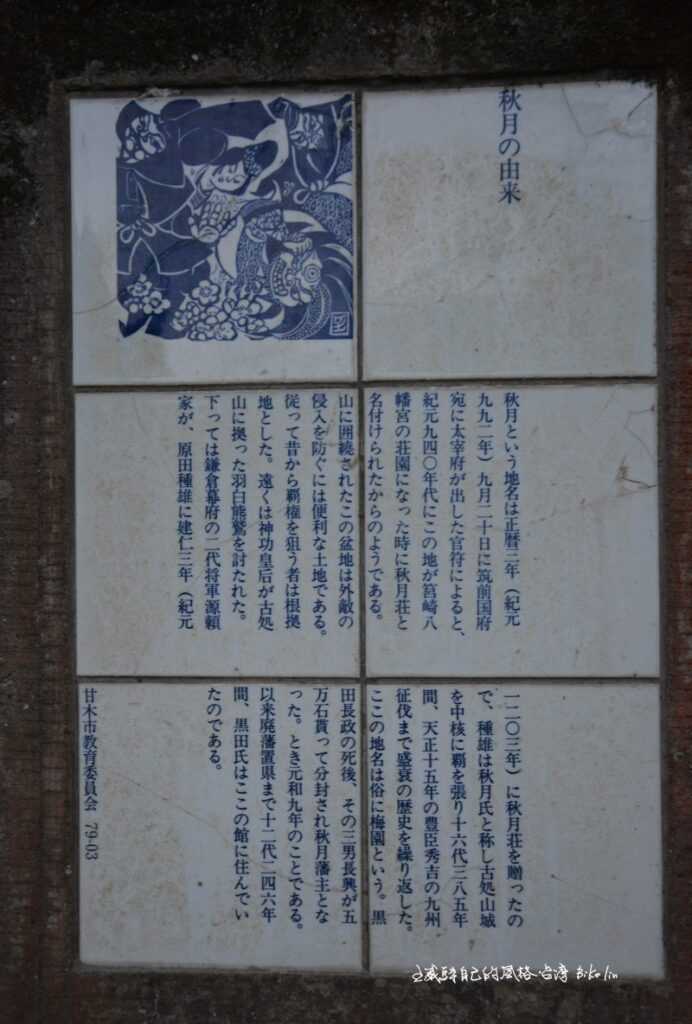 秋月の由来
秋月という地名は正暦三年（紀元
九九二年）九月二十日に筑前国府
宛に太宰府が出した官符によると、
紀元九四〇年代にこの地が筥崎八
幡宮の荘園になった時に秋月荘と
名付けられたからのようである。
山に囲繞されたこの盆地は外敵の
侵入を防ぐには便利な土地である。
従って昔から覇権を狙う者は根拠
地とした。遠くは神功皇后が古処
山に拠った羽白熊鷲を討たれた。
下っては鎌倉幕府の二代将軍源頼
家が、原田種雄に建仁三年（紀元
一二〇三年）に秋月荘を贈ったの
で、種雄は秋月氏と称し古処山城
を中核に覇を張り十六代三八五年
間、天正十五年の豊臣秀吉の九州
征伐まで盛衰の歴史を繰り返した。
ここの地名は俗に梅園という。黒
田長政の死後、その三男長興が五
万石貰って分封され秋月藩主とな
った。とき元和九年のことである。
以来廃藩置県まで十二代二四六年
間、黒田氏はここの館に住んでい
たのである。
甘木市教育委員会 79-03
自己的風格